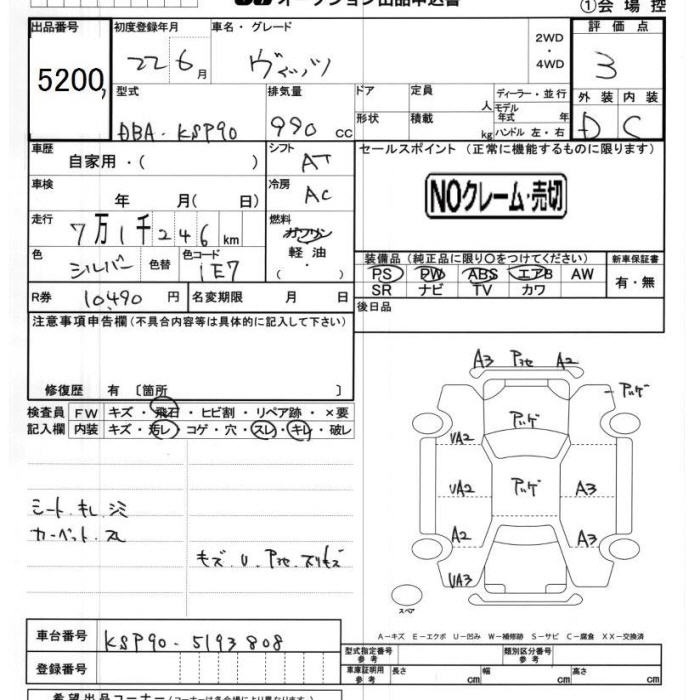 オークション出品申込書
①会場控
出品番号 初度登録年月 車名・グレード 2WD・4WD 評価点
5200 22 6月 ヴィッツ 3
型式 排気量 ドア 定員 人 ディーラー・並行 外装 内装
DBA-KSP90 990 cc 形状 積載 kg モデル年式 年 ハンドル 左・右 D C
車歴 シフト セールスポイント (正常に機能するものに限ります)
自家用・( ) AT
車検 冷房 NOクレーム・売切
年 月( 日) AC
走行 燃料
7万1千246km ガソリン
色 色替 色コード 軽油 装備品 (純正品に限り○をつけてください) 新車保証書
シルバー 1E7 ・( ) PS PW ABS エアB AW 有・無
R券 10,490円 名変期限 月 日 SR ナビ TV カワ
注意事項申告欄(不具合内容等は具体的に記入して下さい) 後日品
修復歴 有 〔箇所 〕
検査員 FW キズ・飛石・ヒビ割・リペア跡・×要
記入欄 内装 キズ・汚レ・コゲ・穴・スレ・キレ・破レ
A3 Pカセ A2
Pハゲ
Pハゲ
UA2
UA2 Pハゲ A3
A2 A3
UA3
スペア
シート.キレ.シミ
カーペット.スレ
キズ.U.Pカセ.スリキズ
A-キズ E-エクボ U-凹み W-補修跡 S-サビ C-腐食 XX-交換済
車台番号 KSP90-5193808
型式指定番号 参考 類別区分番号 参考
登録番号 車庫証明用 参考 長さ cm 幅 cm 高さ cm
希望出品コーナー(コーナーは各会場により異なります)